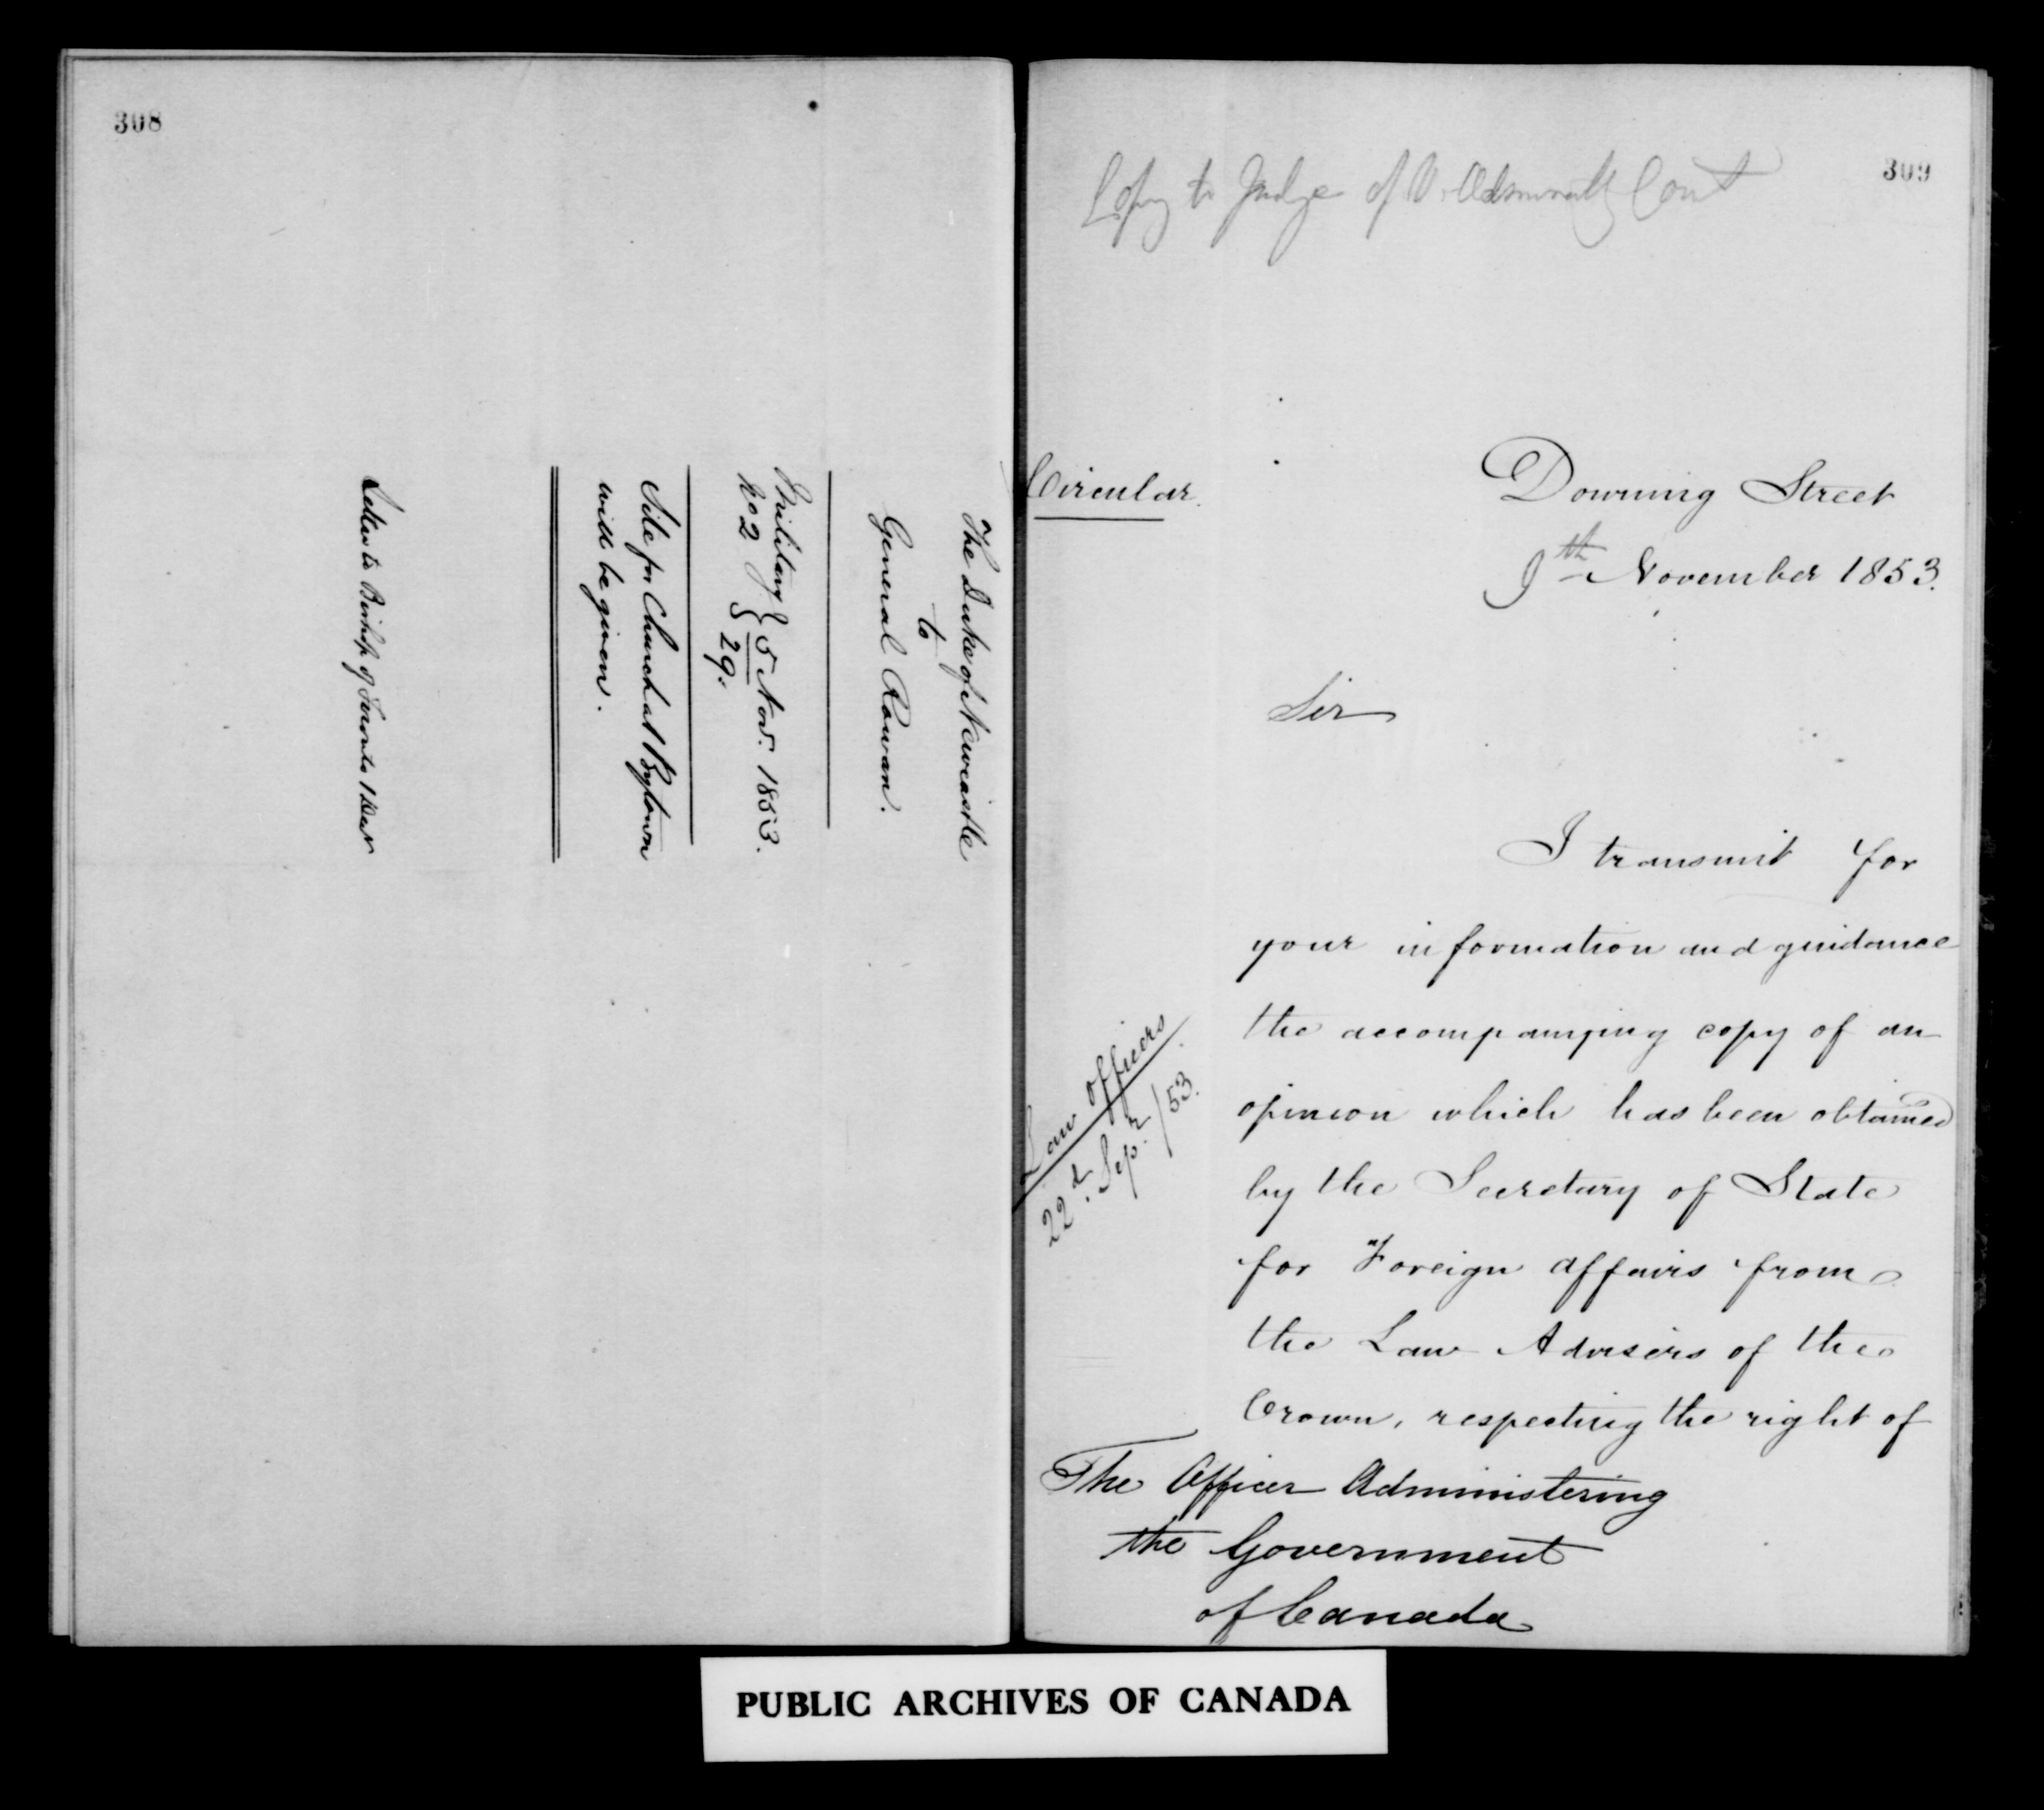 308
The Duke of Newcastle
to
General Rowan.
Military } 5 Nov. 1853.
No 2 } 29.
Site for Church at Bytown
will be given.
Letter to Bishop of Toronto
309
Copy to Judge of V. Admiralty Court
Circular.
Downing Street
9th November 1853.
Sir
I transmit for
your information and guidance
the accompanying copy of an
opinion which has been obtained
by the Secretary of State
for Foreign Affairs from
the Law Advisers of the
Crown, respecting the right of
Law Officers
22d. Sepr/53.
The Officer Administering
the Government
of Canada
PUBLIC ARCHIVES OF CANADA